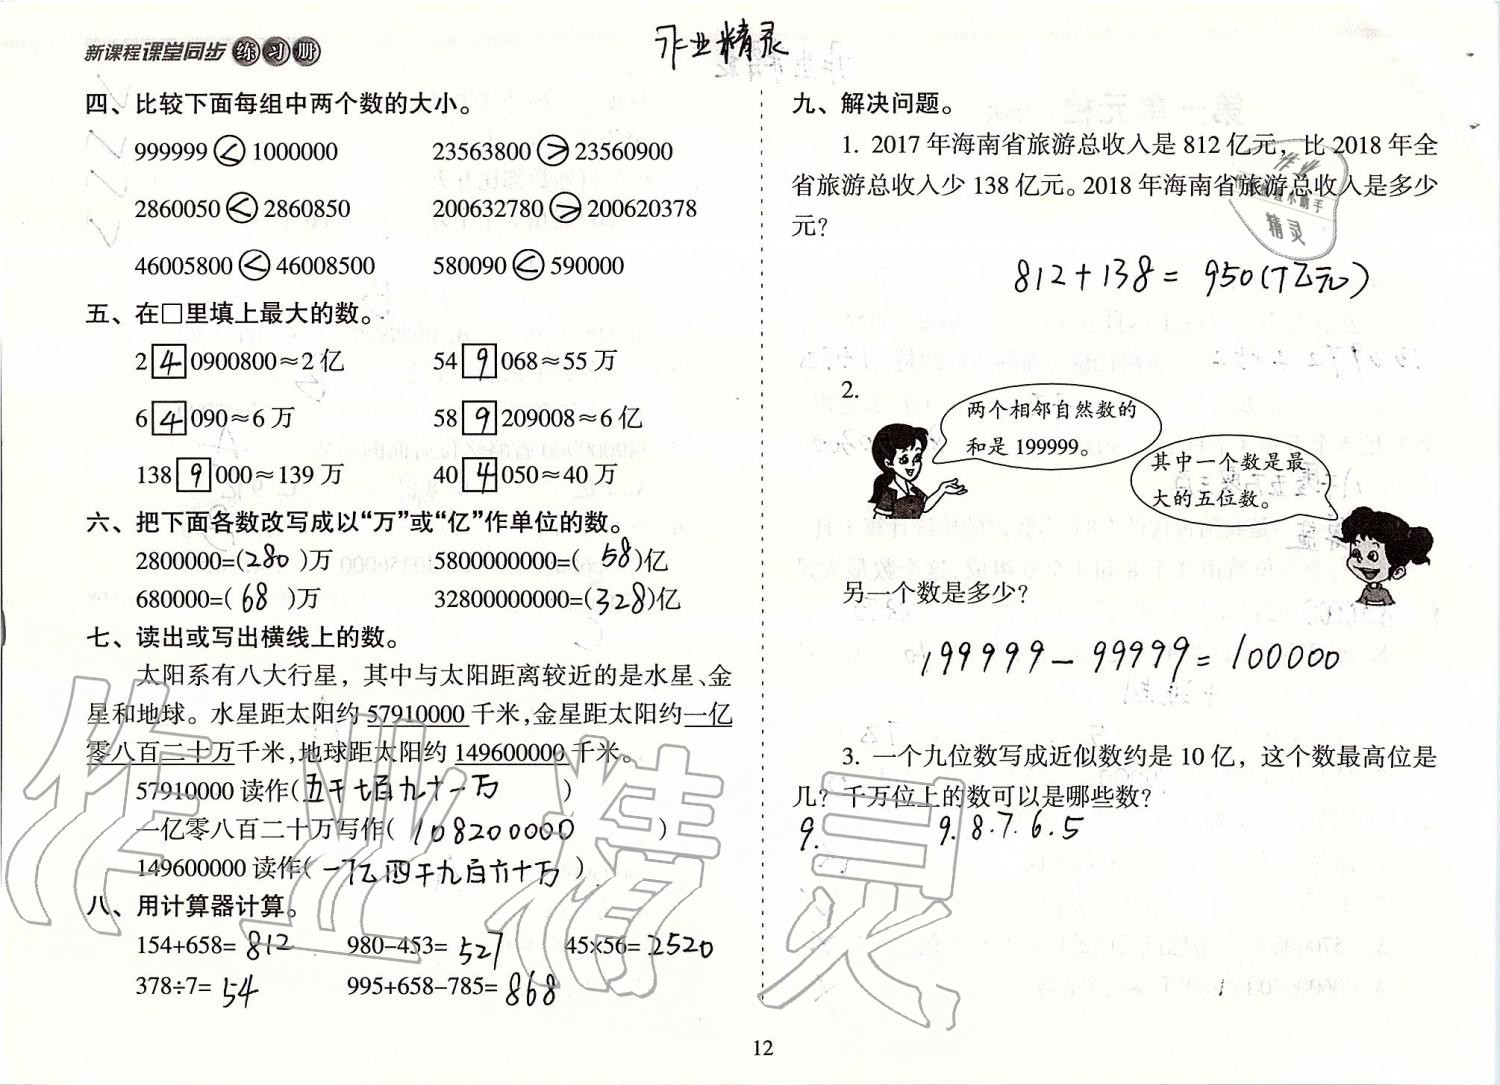 新课程课堂同步练习册
作业精灵
四、比较下面每组中两个数的大小。
999999 < 1000000 23563800 > 23560900
2860050 < 2860850 200632780 > 200620378
46005800 < 46008500 580090 < 590000
五、在□里填上最大的数。
2 4 0900800≈2 亿 54 9 068≈55 万
6 4 090≈6 万 58 9 209008≈6 亿
138 9 000≈139 万 40 4 050≈40 万
六、把下面各数改写成以“万”或“亿”作单位的数。
2800000=(280)万 5800000000=(58)亿
680000=(68)万 32800000000=(328)亿
七、读出或写出横线上的数。
太阳系有八大行星，其中与太阳距离较近的是水星、金
星和地球。水星距太阳约 57910000 千米,金星距太阳约一亿
零八百二十万千米,地球距太阳约 149600000 千米。
57910000 读作(五千七百九十一万)
一亿零八百二十万写作(108200000)
149600000 读作(一亿四千九百六十万)
八、用计算器计算。
154+658=812 980-453=527 45×56=2520
378÷7=54 995+658-785=868
九、解决问题。
1. 2017 年海南省旅游总收入是 812 亿元，比 2018 年全
省旅游总收入少 138 亿元。2018 年海南省旅游总收入是多少
元？
812+138=950(亿元)
2.
两个相邻自然数的
和是 199999。
其中一个数是最
大的五位数。
另一个数是多少？
199999-99999=100000
3. 一个九位数写成近似数约是 10 亿，这个数最高位是
几？千万位上的数可以是哪些数？
9. 9.8.7.6.5
作业
精灵
作业精灵
12